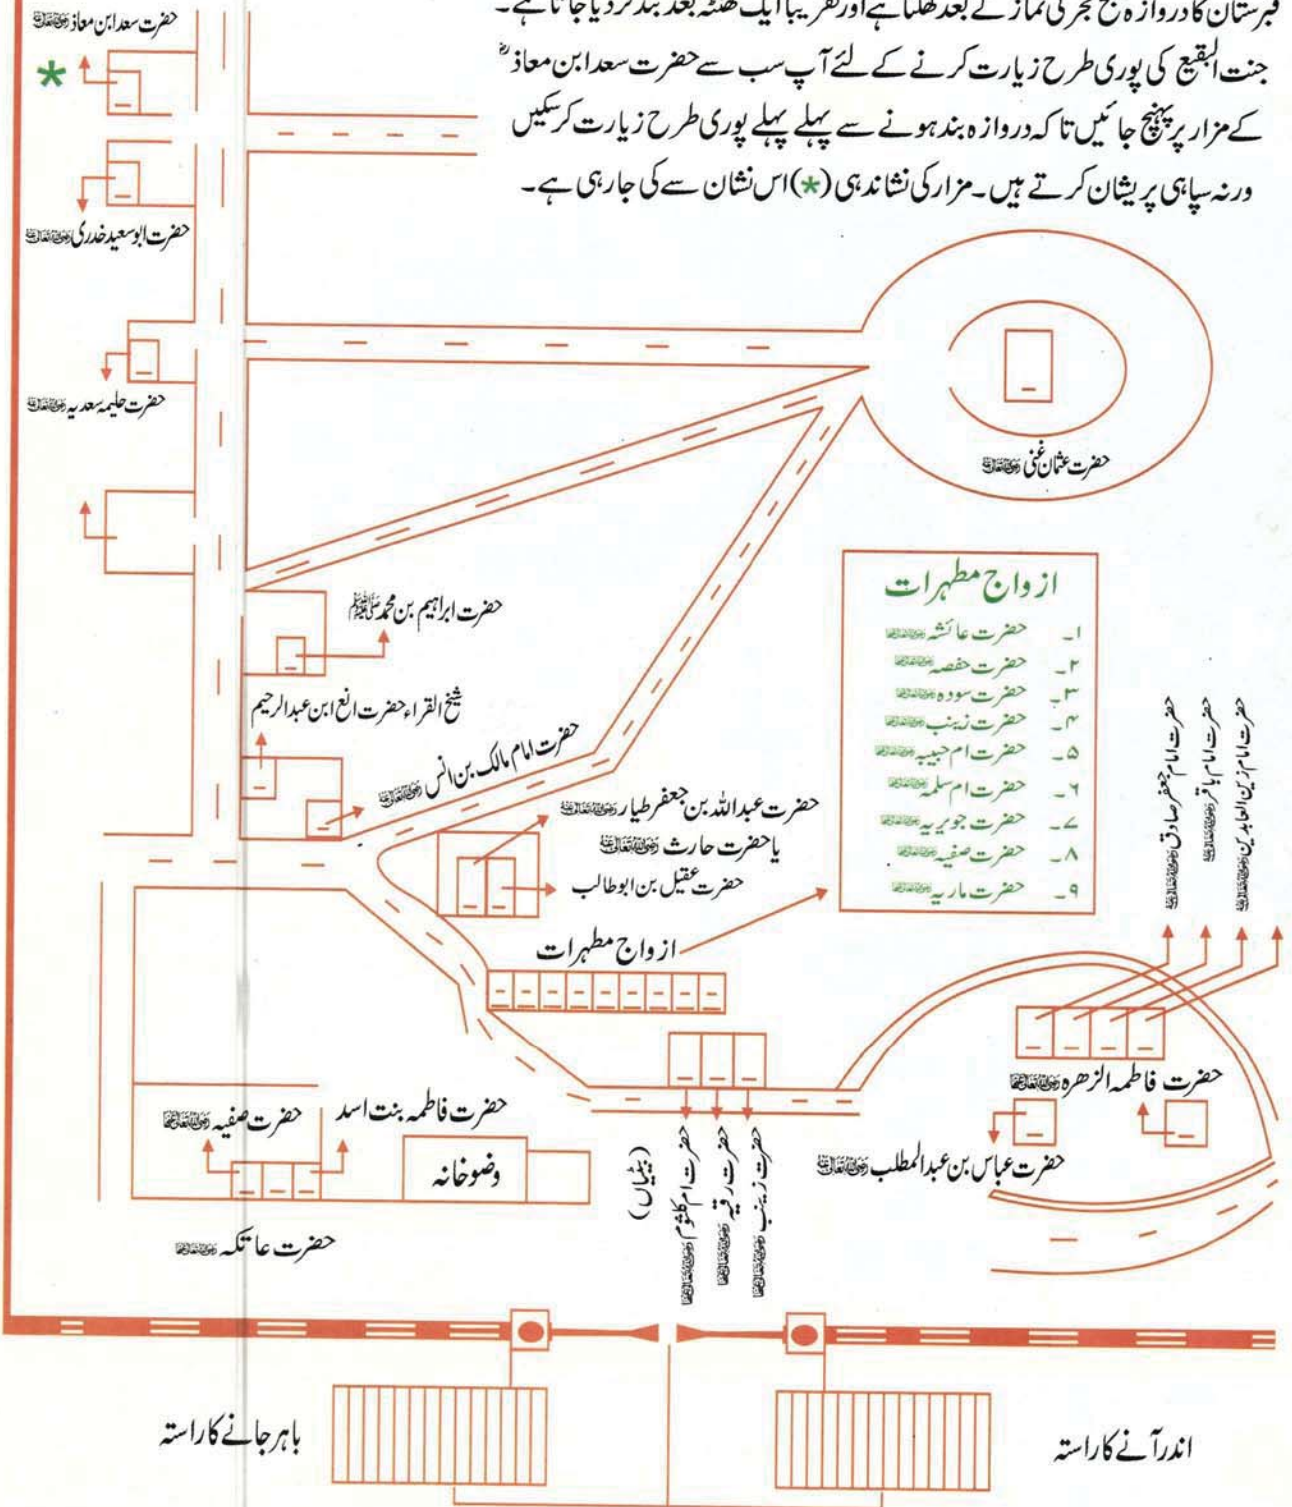 قبرستان کا دروازہ صبح فجر کی نماز کے بعد کھلتا ہے اور تقریباً ایک گھنٹہ بعد بند کر دیا جاتا ہے۔
جنت البقیع کی پوری طرح زیارت کرنے کے لئے آپ سب سے حضرت سعد ابن معاذؓ
کے مزار پر پہنچ جائیں تاکہ دروازہ بند ہونے سے پہلے پہلے پوری طرح زیارت کر سکیں
ورنہ سپاہی پریشان کرتے ہیں۔ مزار کی نشاندہی (*) اس نشان سے کی جا رہی ہے۔
حضرت سعد ابن معاذ رضی اللہ تعالیٰ عنہ
*
حضرت ابو سعید خدری رضی اللہ تعالیٰ عنہ
حضرت حلیمہ سعدیہ رضی اللہ تعالیٰ عنہا
حضرت عثمان غنی رضی اللہ تعالیٰ عنہ
حضرت ابراہیم بن محمد ﷺ
شیخ القراء حضرت انع ابن عبدالرحیم
حضرت امام مالک بن انس رضی اللہ تعالیٰ عنہ
حضرت عبداللہ بن جعفر طیار رضی اللہ تعالیٰ عنہ
یا حضرت حارث رضی اللہ تعالیٰ عنہ
حضرت عقیل بن ابو طالب
ازواج مطہرات
ازواج مطہرات
۱۔ حضرت عائشہ رضی اللہ تعالیٰ عنہا
۲۔ حضرت حفصہ رضی اللہ تعالیٰ عنہا
۳۔ حضرت سودہ رضی اللہ تعالیٰ عنہا
۴۔ حضرت زینب رضی اللہ تعالیٰ عنہا
۵۔ حضرت ام حبیبہ رضی اللہ تعالیٰ عنہا
۶۔ حضرت ام سلمہ رضی اللہ تعالیٰ عنہا
۷۔ حضرت جویریہ رضی اللہ تعالیٰ عنہا
۸۔ حضرت صفیہ رضی اللہ تعالیٰ عنہا
۹۔ حضرت ماریہ رضی اللہ تعالیٰ عنہا
حضرت امام جعفر صادق رضی اللہ تعالیٰ عنہ
حضرت امام باقر رضی اللہ تعالیٰ عنہ
حضرت امام زین العابدین رضی اللہ تعالیٰ عنہ
حضرت فاطمہ الزھرہ رضی اللہ تعالیٰ عنہا
حضرت عباس بن عبدالمطلب رضی اللہ تعالیٰ عنہ
حضرت زینب رضی اللہ تعالیٰ عنہا
حضرت رقیہ رضی اللہ تعالیٰ عنہا
حضرت ام کلثوم رضی اللہ تعالیٰ عنہا
(بیٹیاں)
حضرت فاطمہ بنت اسد
حضرت صفیہ رضی اللہ تعالیٰ عنہا
وضو خانہ
حضرت عاتکہ رضی اللہ تعالیٰ عنہا
اندر آنے کا راستہ
باہر جانے کا راستہ